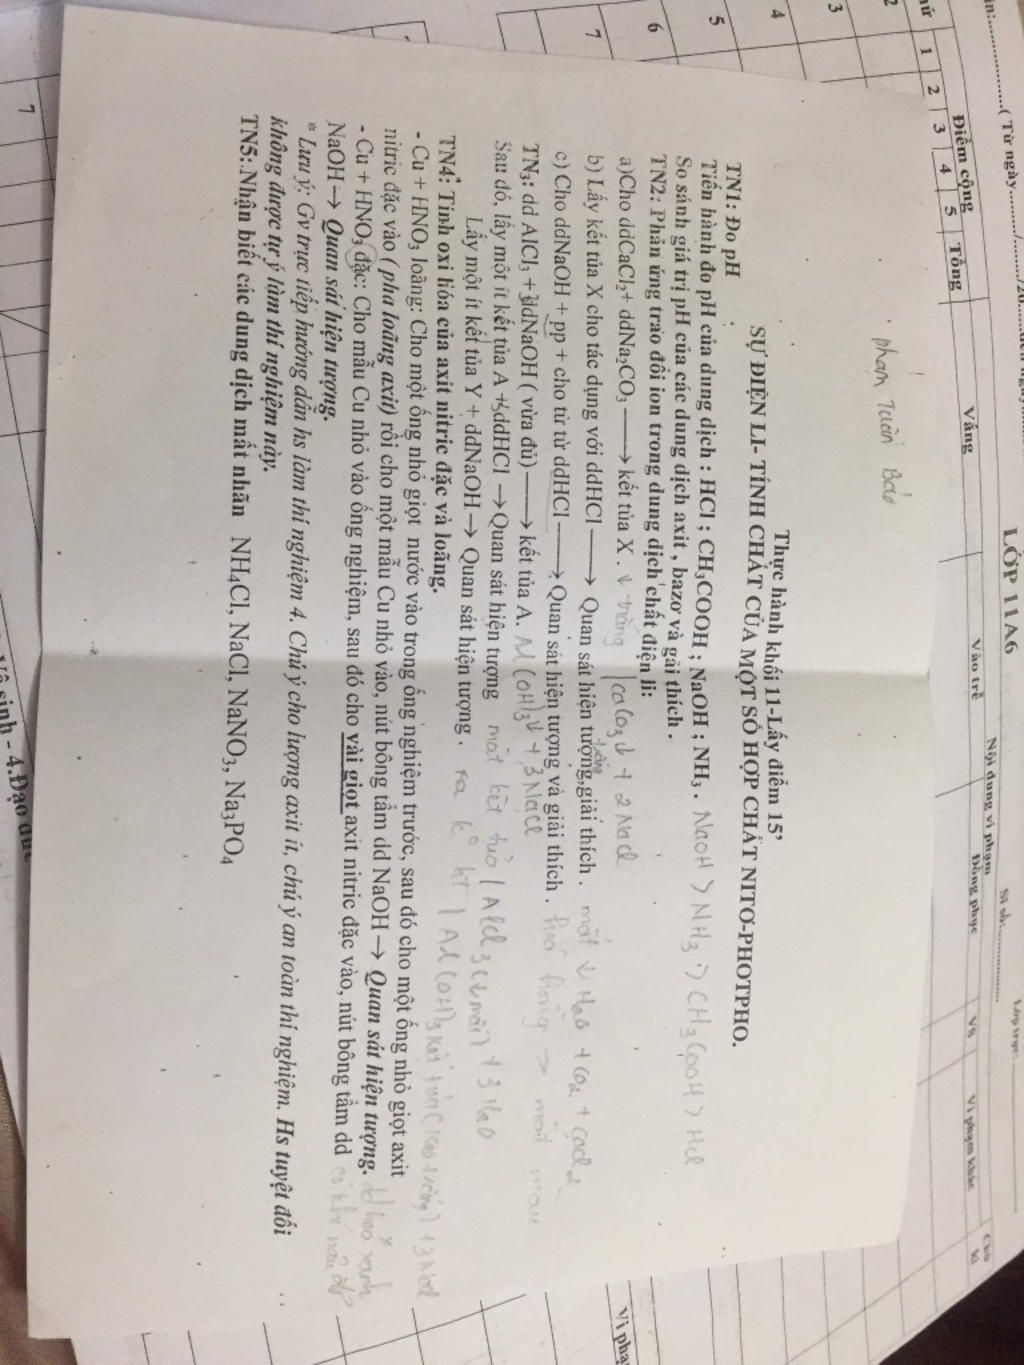 LỚP 11A6
Nội dung vi phạm
Sĩ số:
( Từ ngày
Điểm cộng
Vắng
Vào trễ
Đồng phục
VS
Vi phạm khác
1 2 3 4 5 Tổng
2
3
4
5
6
7
phạm Tuấn Bảo
Thực hành khối 11-Lấy điểm 15’
SỰ ĐIỆN LI- TÍNH CHẤT CỦA MỘT SỐ HỢP CHẤT NITƠ-PHOTPHO.
TN1: Đo pH
Tiến hành đo pH của dung dịch : HCl ; CH₃COOH ; NaOH ; NH₃ . NaOH > NH₃ > CH₃COOH > HCl
So sánh giá trị pH của các dung dịch axit , bazơ và gải thích .
TN2: Phản ứng trao đổi ion trong dung dịch chất điện li:
a)Cho ddCaCl₂+ ddNa₂CO₃ ——→ kết tủa X . ↓ trắng | CaCO₃↓ + 2 NaCl
b) Lấy kết tủa X cho tác dụng với ddHCl ——→ Quan sát hiện tượng,giải thích . mất ↓ H₂O + CO₂ + CaCl₂
c) Cho ddNaOH + pp + cho từ từ ddHCl ——→ Quan sát hiện tượng và giải thích . hoá hồng → mất màu
TN₃: dd AlCl₃ + 3ddNaOH ( vừa đủ) ——→ kết tủa A. Al(OH)₃↓ + 3NaCl
Sau đó, lấy một ít kết tủa A + 3ddHCl → Quan sát hiện tượng mất kết tủa | AlCl₃ + 3 H₂O
Lấy một ít kết tủa Y + ddNaOH → Quan sát hiện tượng . ra k° ht | Al(OH)₃ + 3NaCl
TN4: Tính oxi hóa của axit nitric đặc và loãng.
- Cu + HNO₃ loãng: Cho một ống nhỏ giọt nước vào trong ống nghiệm trước, sau đó cho một ống nhỏ giọt axit
nitric đặc vào ( pha loãng axit) rồi cho một mẫu Cu nhỏ vào, nút bông tẩm dd NaOH → Quan sát hiện tượng. dd xanh
- Cu + HNO₃ đặc: Cho mẫu Cu nhỏ vào ống nghiệm, sau đó cho vài giọt axit nitric đặc vào, nút bông tẩm dd có khí nâu đỏ
NaOH → Quan sát hiện tượng.
* Lưu ý: Gv trực tiếp hướng dẫn hs làm thí nghiệm 4. Chú ý cho lượng axit ít, chú ý an toàn thí nghiệm. Hs tuyệt đối
không được tự ý làm thí nghiệm này.
TN5: Nhận biết các dung dịch mất nhãn NH₄Cl, NaCl, NaNO₃, Na₃PO₄
7